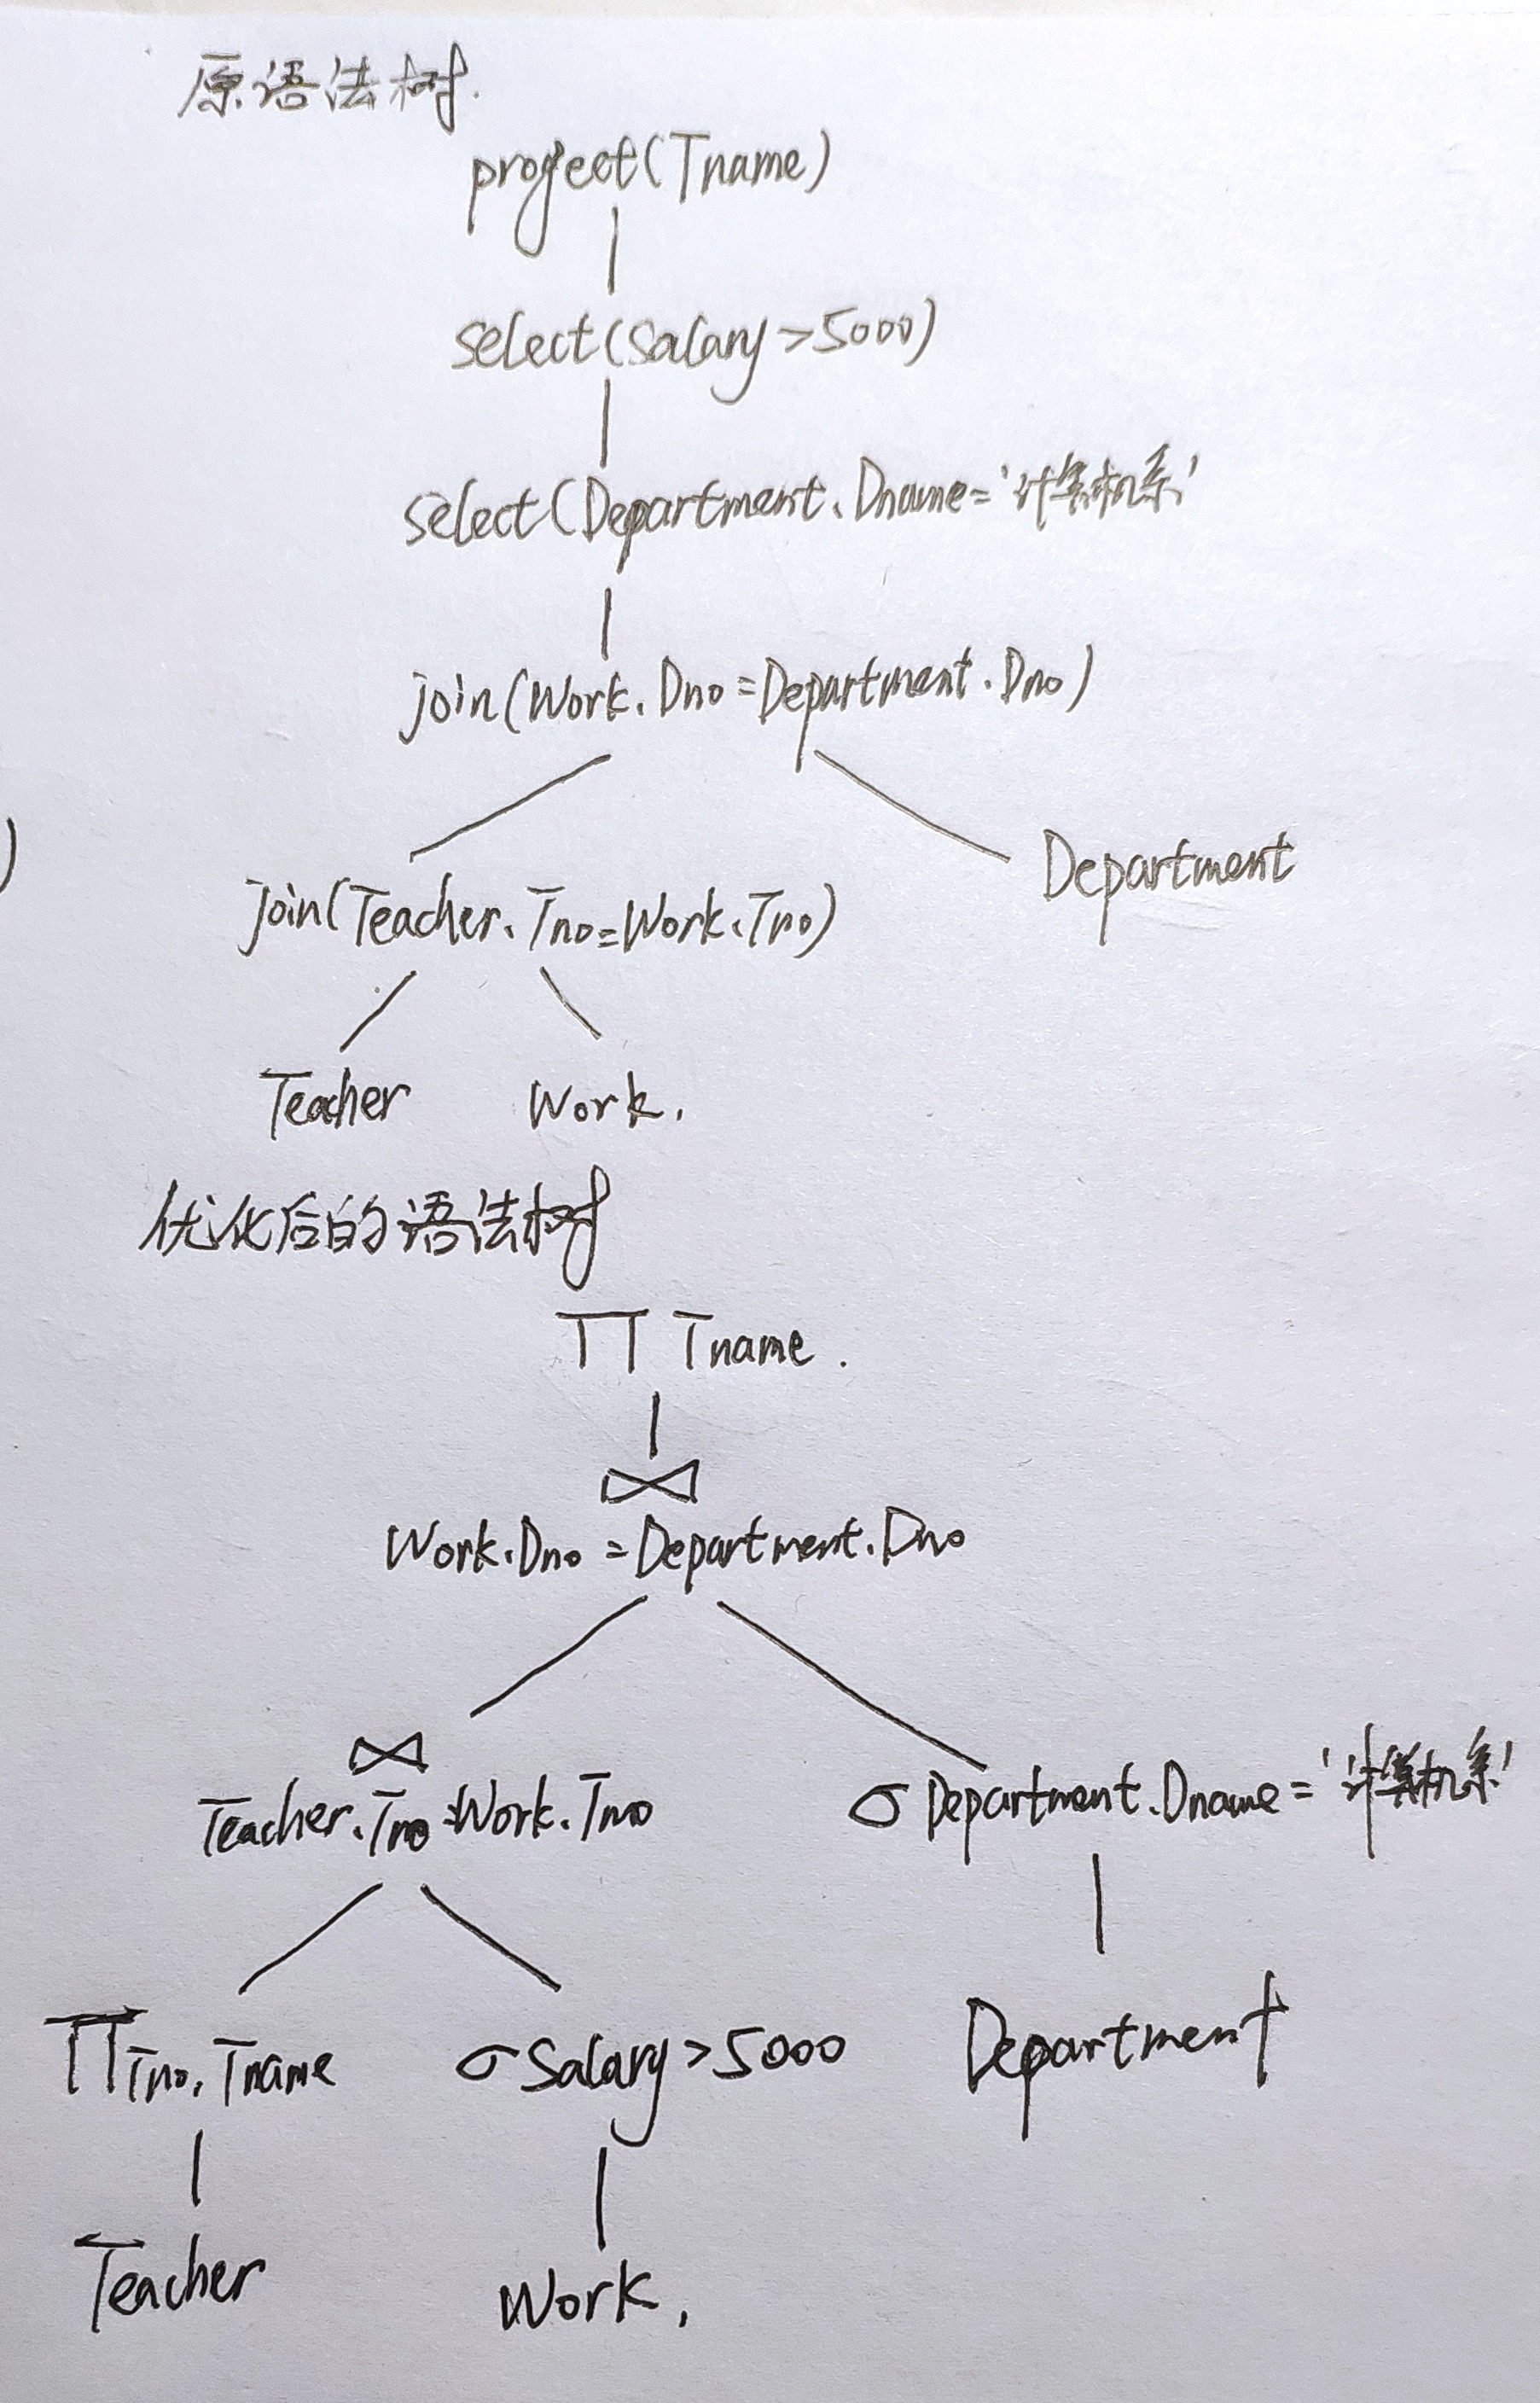 原语法树.
project(Tname)
select(Salary>5000)
select(Department.Dname='计算机系'
join(Work.Dno=Department.Dno)
)
Department
join(Teacher.Tno=Work.Tno)
Teacher Work.
优化后的语法树
Π Tname.
⋈
Work.Dno=Department.Dno
⋈
Teacher.Tno=Work.Tno σ Department.Dname='计算机系'
Π Tno, Tname σ Salary>5000 Department
Teacher Work.